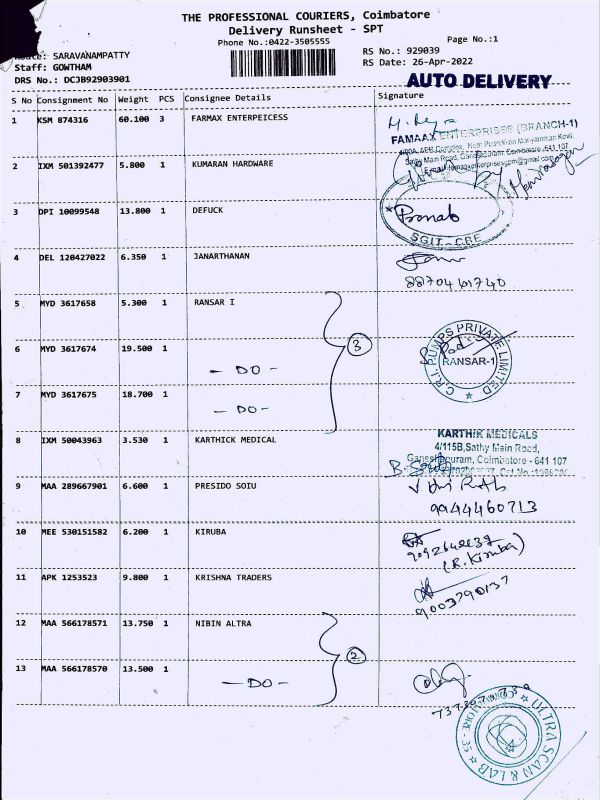 THE PROFESSIONAL COURIERS, Coimbatore
Delivery Runsheet - SPT
Phone No.:0422-3505555
Page No.:1
Route: SARAVANAMPATTY
RS No.: 929039
Staff: GOWTHAM
RS Date: 26-Apr-2022
DRS No.: DCJB92903901
AUTO DELIVERY
S No Consignment No Weight PCS Consignee Details Signature
1 KSM 874316 60.100 3 FARMAX ENTERPEICESS
FAMAAX ENTERPRISES (BRANCH-1)
Sathy Main Road, Ganeshapuram Coimbatore -641 107
2 IXM 501392477 5.800 1 KUMARAN HARDWARE
3 DPI 10099548 13.800 1 DEFUCK
Pranab
SGIT-CBE
4 DEL 120427022 6.350 1 JANARTHANAN
5 MYD 3617658 5.300 1 RANSAR I
6 MYD 3617674 19.500 1
- DO -
3
C.R.I. PUMPS PRIVATE LIMITED
RANSAR-1
7 MYD 3617675 18.700 1
- DO -
8 IXM 50043963 3.530 1 KARTHICK MEDICAL
KARTHIK MEDICALS
4/115B,Sathy Main Road,
Ganeshapuram, Coimbatore - 641 107
9 MAA 289667901 6.600 1 PRESIDO SOIU
9944460713
10 MEE 530151582 6.200 1 KIRUBA
(R. Kiruba)
11 APK 1253523 9.800 1 KRISHNA TRADERS
9003790137
12 MAA 566178571 13.750 1 NIBIN ALTRA
2
13 MAA 566178570 13.500 1
- DO -
ULTRA SCAN & LAB